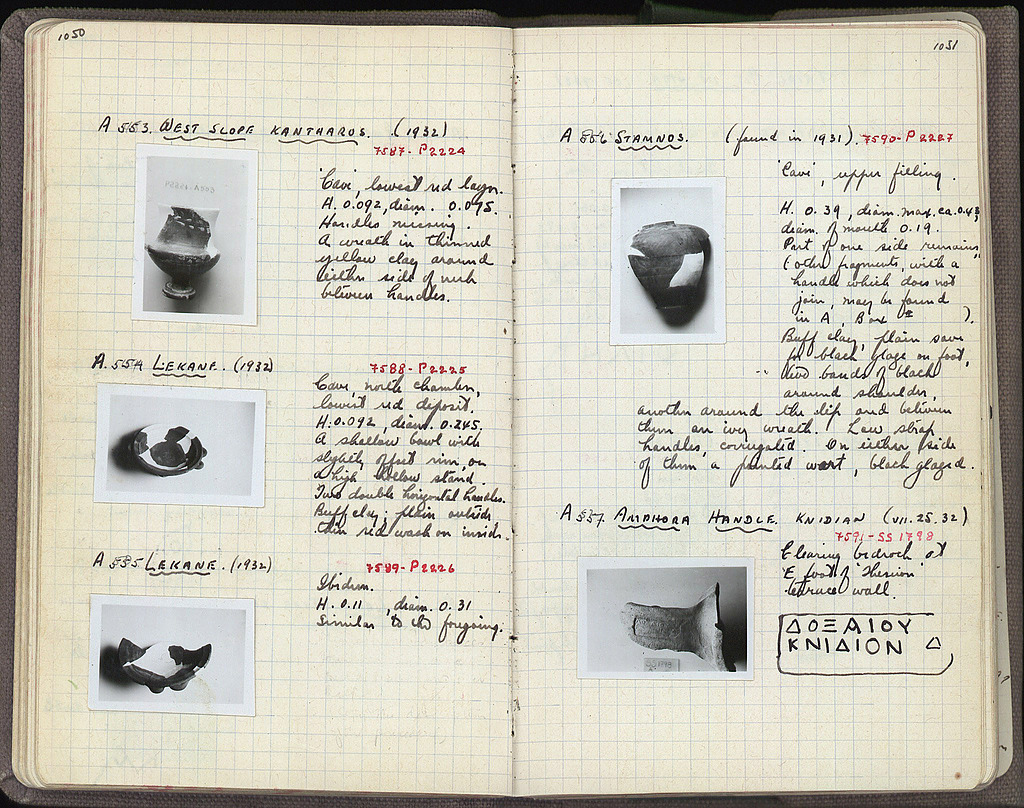 1050
A 553. WEST SLOPE KANTHAROS. (1932)
7587-P2224
'Cave', lowest red layer.
H. 0.092, diam. 0.095.
Handles missing.
A wreath in thinned
yellow clay around
either side of neck
between handles.
A 554 LEKANE. (1932)
7588-P2225
Cave, north chamber,
lowest red deposit.
H. 0.092, diam. 0.245.
A shallow bowl with
slightly offset rim, on
a high hollow stand.
Two double horizontal handles.
Buff clay; plain outside,
thin red wash on inside.
A 555 LEKANE. (1932)
7589-P2226
Ibidem.
H. 0.11 , diam. 0.31
Similar to the foregoing.
1051
A 556 STAMNOS. (found in 1931). 7590-P2227
'Cave', upper filling.
H. 0.39, diam. max. ca. 0.43,
diam. of mouth 0.19.
Part of one side remains,
(other fragments, with a
handle which does not
join, may be found
in A, Box ).
Buff clay, plain save
for black glaze on foot,
two bands of black
around shoulder,
another around the lip and between
them an ivy wreath. Low strap
handles, corrugated. On either side
of them a painted wart, black glazed.
A 557. AMPHORA HANDLE. KNIDIAN (VII.25.32)
7591-SS 1798
Clearing bedrock at
E. foot of 'Theseion'
terrace wall.
ΔΟΞΑΙΟΥ
ΚΝΙΔΙΟΝ Δ
SS 1798